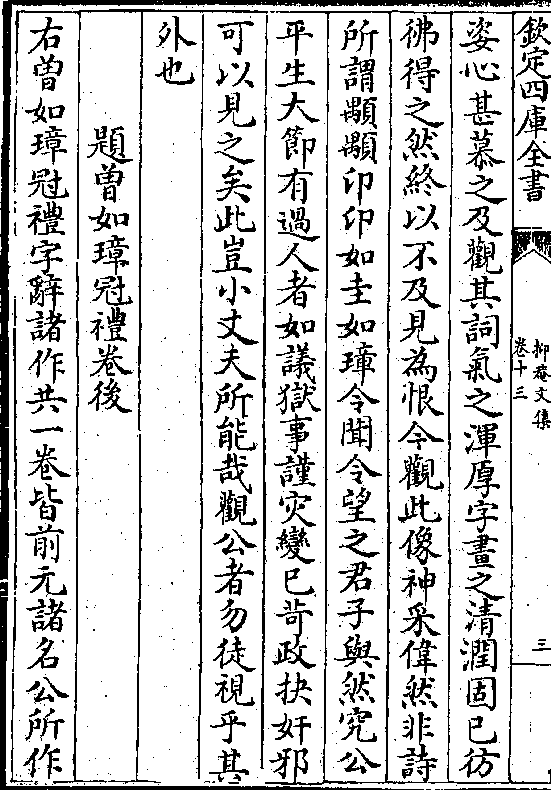 欽定四庫全書
抑菴文集
卷十三
三
姿心甚慕之及觀其詞氣之渾厚字畫之清潤固已彷
彿得之然終以不及見為恨今觀此像神采偉然非詩
所謂顒顒卬卬如圭如璋令聞令望之君子與然究公
平生大節有過人者如議獄事謹灾變已苛政抉奸邪
可以見之矣此豈小丈夫所能哉觀公者勿徒視乎其
外也
題曽如璋冠禮卷後
右曽如璋冠禮字辭諸作共一卷皆前元諸名公所作